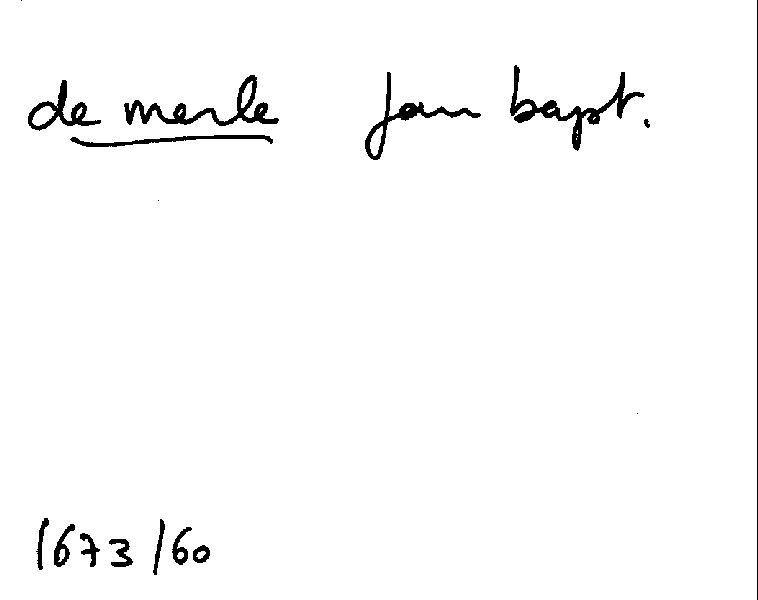 de merle Jan bapt.
1673/60